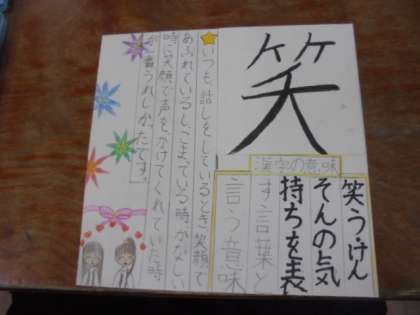 笑
漢字の意味
笑う、けん
そんの気
持ちを表
す言葉と
言う意味
いつも、話しをしているとき笑顔で
あふれているしこまっている時かなしい
時に笑顔で声をかけてくれていた時
が一番うれしかったです。